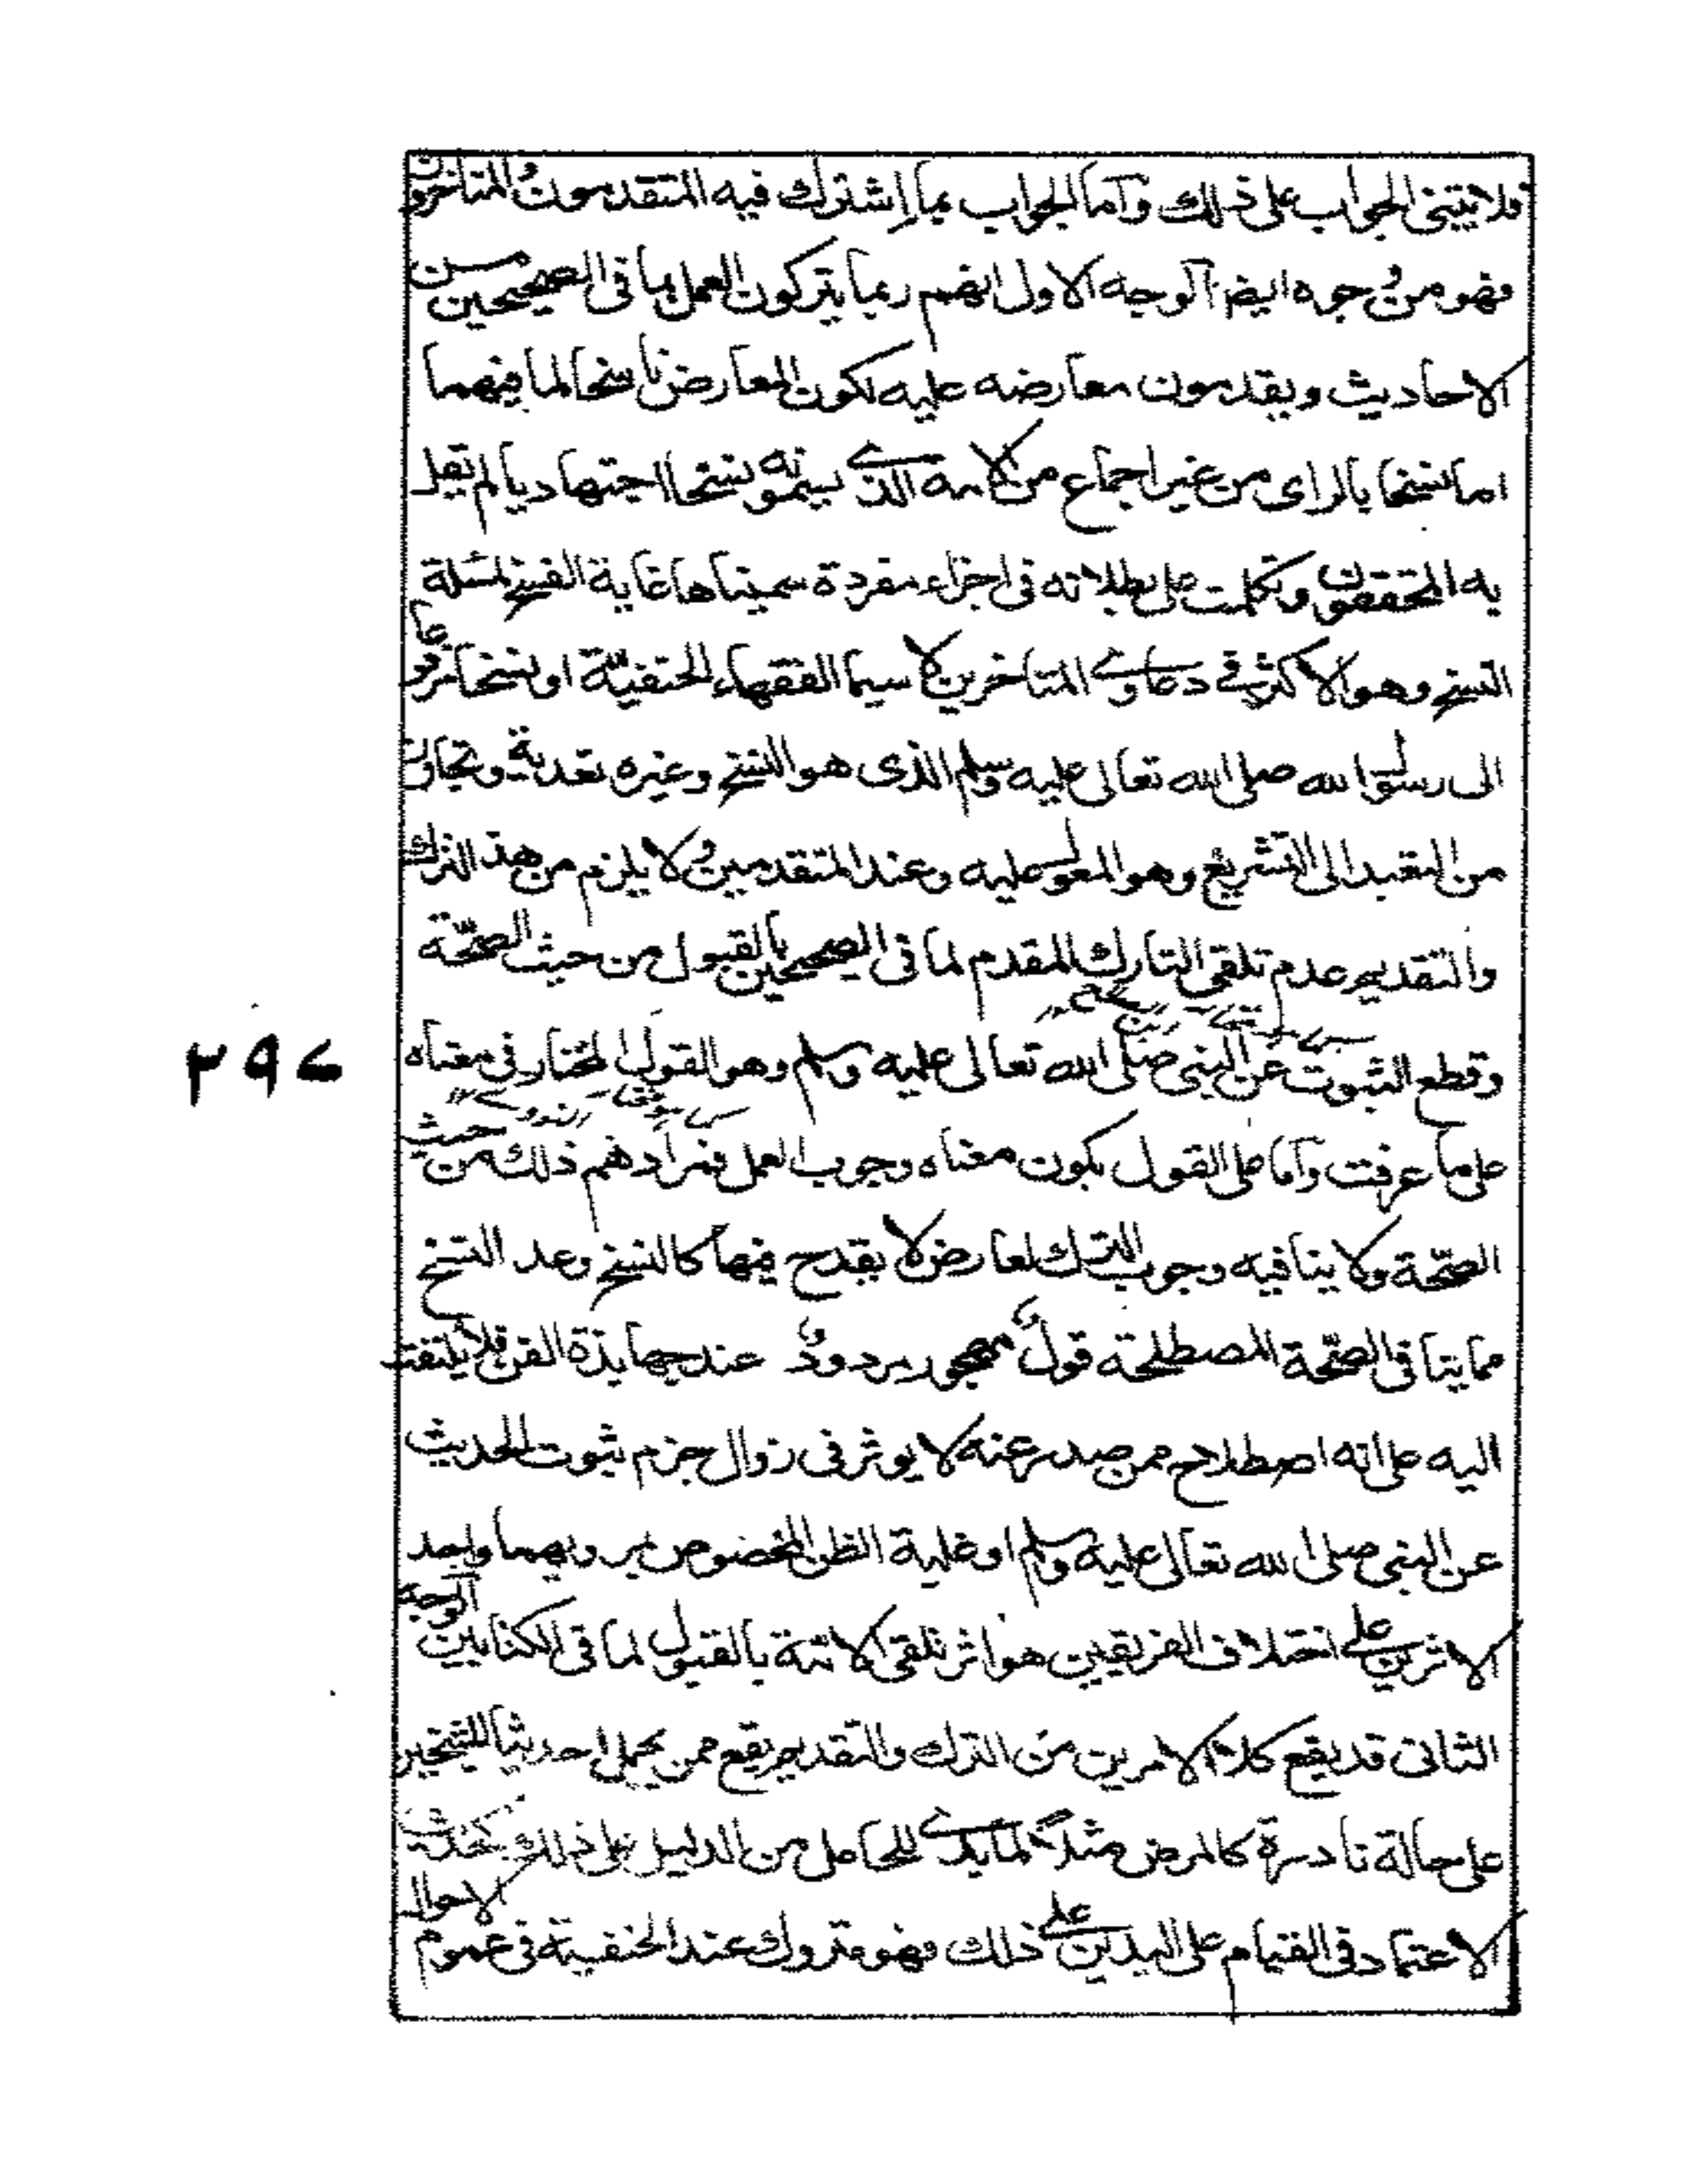 فلا يبتنى الجواب على ذلك وأما الجواب بما اشترك فيه المتقدمون والمتاخرون
فهو من وجوه ايضا الوجه الاول انهم ربما يتركون العمل بما فى الصحيحين من
الاحاديث ويقدمون معارضه عليه لكون المعارض ناسخا لما فيهما
اما نسخا بالراى من غير اجماع من الامة الذى يسمونه نسخا اجتهاديا لم يقل
به المحققون وتكلمت على بطلانه فى اجزاء مفردة سميناها غاية الفسخ لمسئلة
النسخ وهو الاكثر فى دعاوى المتاخرين لا سيما الفقهاء الحنفية او نسخا مرفوعا
الى رسول الله صلى الله تعالى عليه وسلم الذى هو النسخ وغيره تعدية وتجاوز
من التعبد الى التشريع وهو المعول عليه وعند المتقدمين ولا يلزم من هذا الترك
والتقديم عدم تلقى التارك المقدم لما فى الصحيحين بالقبول من حيث الصحة
وقطع الثبوت عن النبى صلى الله تعالى عليه وسلم وهو القول المختار فى معناه
٢٩٧
على ما عرفت وأما على القول بكون معناه وجوب العمل فمرادهم ذلك من حيث
الصحة ولا ينافيه وجوب الترك لمعارض لا يقدح فيها كالنسخ وعد النسخ
مما ينافى الصحة المصطلحة قول مهجور مردود عند جهابذة الفن فلا يلتفت
اليه على انه اصطلاح ممن صدر عنه لا يوثر فى زوال جزم ثبوت الحديث
عن النبى صلى الله تعالى عليه وسلم او غلبة الظن المخصوص بمرويهما واحد
الاثرين على اختلاف الفريقين هو اثر تلقى الائمة بالقبول لما فى الكتابين الوجه
الثانى قد يقع كلا الامرين من الترك والتقديم يقع ممن يحمل احديثا للشيخين
على حالة نادرة كالمرض مثلا لما يبدى للحامل من الدليل على ذلك كحديث
الاعتماد فى القيام على اليدين على ذلك فهو متروك عند الحنفية فى عموم الاحوال